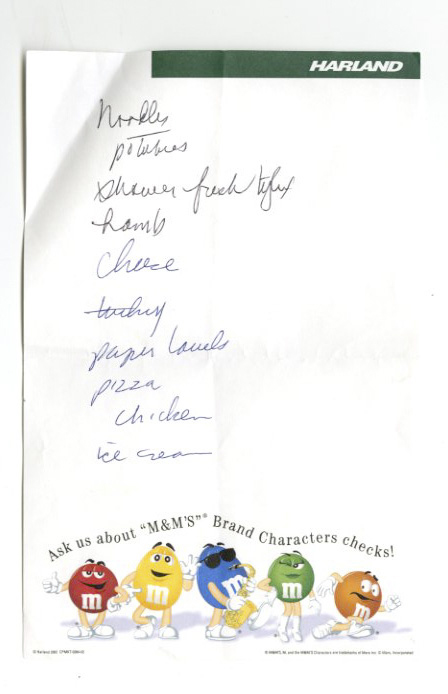 HARLAND
Noodles
potatoes
shower fresh
hamb
cheese
turkey
paper towels
pizza
chicken
ice cream
Ask us about "M&M'S"® Brand Characters checks!
m
m
m
m
m